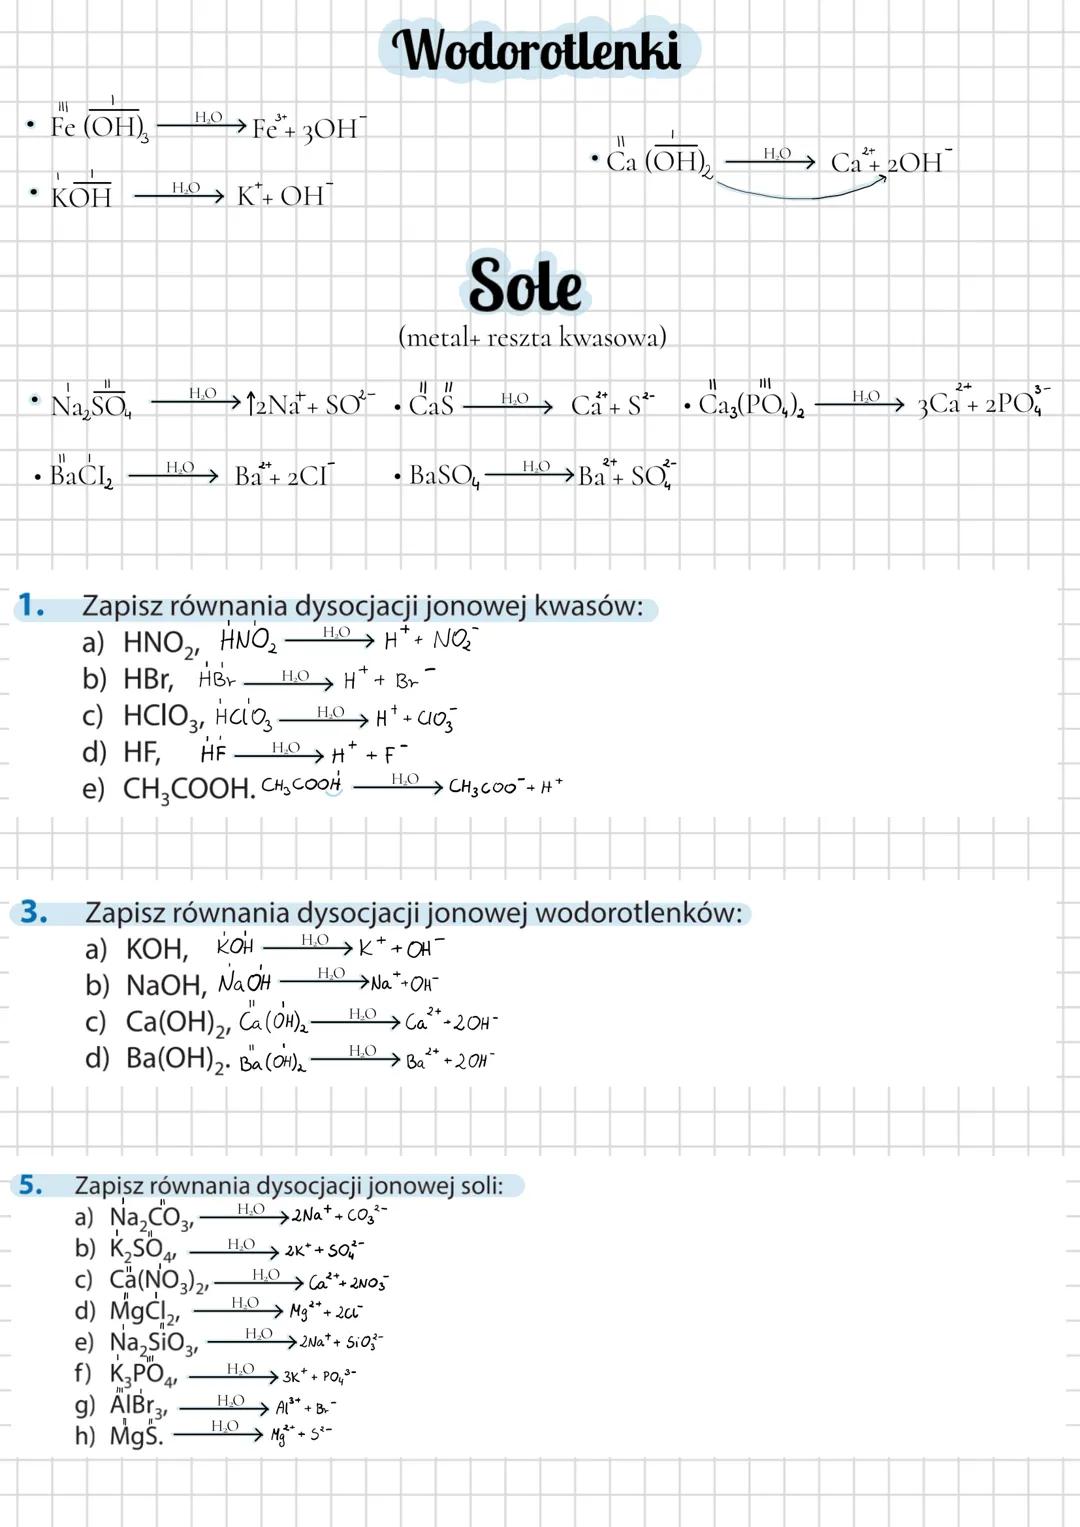 Wodorotlenki
• Fe (OH)₃ —H₂O→ Fe³⁺ + 3OH⁻
• Ca (OH)₂ —H₂O→ Ca²⁺ + 2OH⁻
• KOH —H₂O→ K⁺ + OH⁻
Sole
(metal+ reszta kwasowa)
• Na₂SO₄ —H₂O→ ↑2Na⁺ + SO²⁻ • CaS —H₂O→ Ca²⁺ + S²⁻ • Ca₃(PO₄)₂ —H₂O→ 3Ca²⁺ + 2PO₄³⁻
• BaCl₂ —H₂O→ Ba²⁺ + 2Cl⁻ • BaSO₄ —H₂O→ Ba²⁺ + SO₄²⁻
1. Zapisz równania dysocjacji jonowej kwasów:
a) HNO₂, HNO₂ —H₂O→ H⁺ + NO₂⁻
b) HBr, HBr —H₂O→ H⁺ + Br⁻
c) HClO₃, HClO₃ —H₂O→ H⁺ + ClO₃⁻
d) HF, HF —H₂O→ H⁺ + F⁻
e) CH₃COOH. CH₃COOH —H₂O→ CH₃COO⁻ + H⁺
3. Zapisz równania dysocjacji jonowej wodorotlenków:
a) KOH, KOH —H₂O→ K⁺ + OH⁻
b) NaOH, NaOH —H₂O→ Na⁺ + OH⁻
c) Ca(OH)₂, Ca(OH)₂ —H₂O→ Ca²⁺ + 2OH⁻
d) Ba(OH)₂. Ba(OH)₂ —H₂O→ Ba²⁺ + 2OH⁻
5. Zapisz równania dysocjacji jonowej soli:
a) Na₂CO₃, —H₂O→ 2Na⁺ + CO₃²⁻
b) K₂SO₄, —H₂O→ 2K⁺ + SO₄²⁻
c) Ca(NO₃)₂, —H₂O→ Ca²⁺ + 2NO₃⁻
d) MgCl₂, —H₂O→ Mg²⁺ + 2Cl⁻
e) Na₂SiO₃, —H₂O→ 2Na⁺ + SiO₃²⁻
f) K₃PO₄, —H₂O→ 3K⁺ + PO₄³⁻
g) AlBr₃, —H₂O→ Al³⁺ + Br⁻
h) MgS. —H₂O→ Mg²⁺ + S²⁻